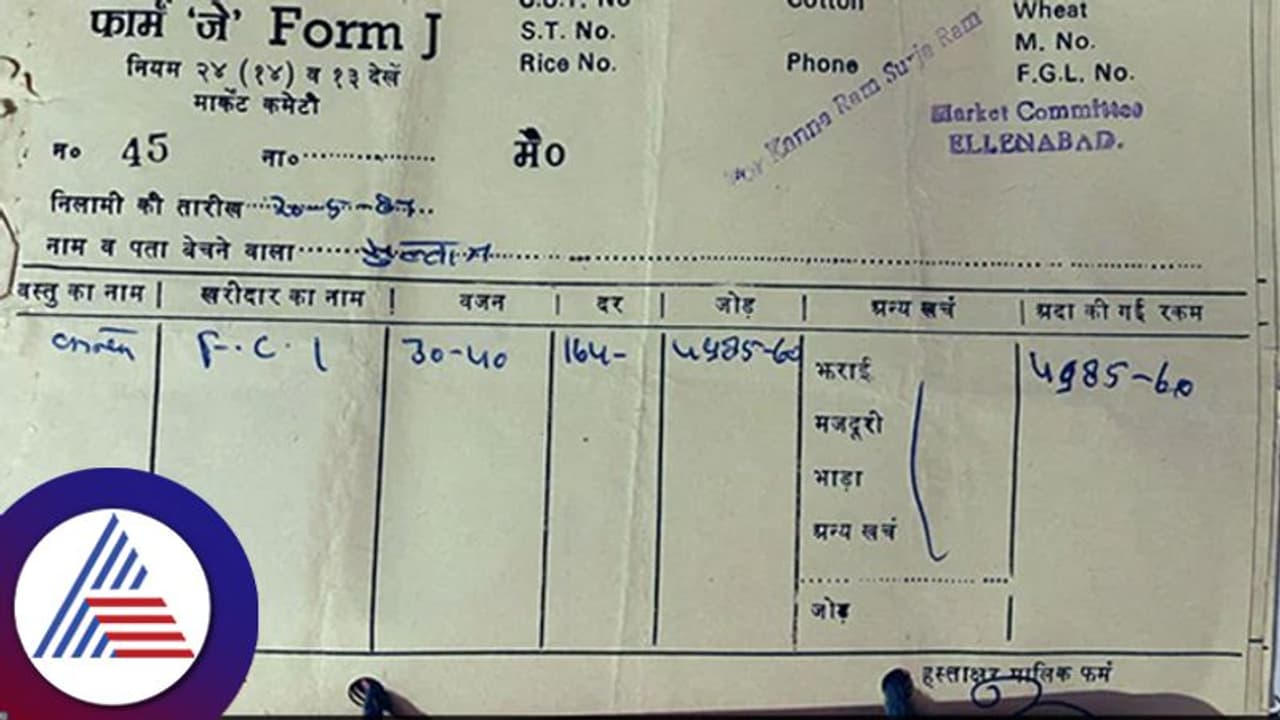 फार्म ‘जे’ Form J
नियम २४ (१४) व १३ देखें
मार्केट कमेटी
S.T. No.
Rice No.
Cotton
Phone
Wheat
M. No.
F.G.L. No.
Kanna Ram Surja Ram
Market Committee
ELLENABAD.
न० 45 ना०
मै०
निलामी की तारीख
नाम व पता बेचने वाला
वस्तु का नाम खरीदार का नाम वजन दर जोड़ अन्य खर्च अदा की गई रकम
कनक F.C.I 30-40 164- 4985-60 झराई 4985-60
मजदूरी
भाड़ा
अन्य खर्च
जोड़
हस्ताक्षर मालिक फर्म